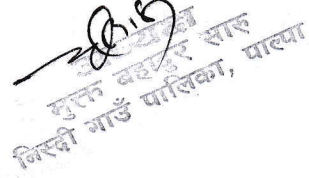 अध्यक्ष
मुक्त बहादुर सारु
निस्दी गाउँ पालिका, पाल्पा